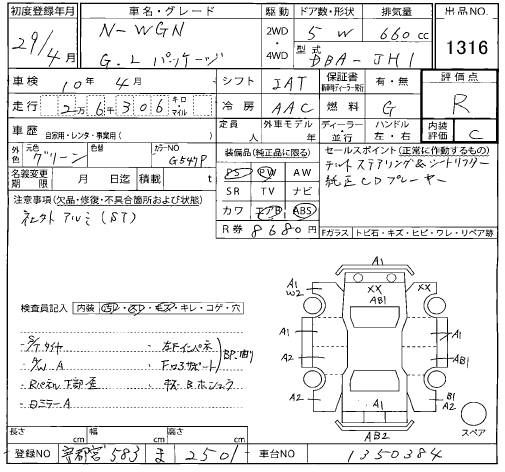 初度登録年月 車名・グレード 駆動 ドア数・形状 排気量 出品NO.
29/4月 N-WGN G.Lパッケージ 2WD・4WD 5 W 660cc 1316
型式 DBA-JH1
車検 10年 4月 シフト IAT 保証書 有・無 評価点
走行 2万6千306 キロ・マイル 冷房 AAC 燃料 G R
車歴 自家用・レンタ・事業用( ) 定員 人 外車モデル 年 ディーラー・並行 ハンドル 左・右 内装評価 C
外色 元色 グリーン 色替 カラーNO G547P
装備品(純正品に限る) セールスポイント(正常に作動するもの)
名義変更期限 月 日迄 積載 t PS PW AW チルトステアリング&シートリフター
SR TV ナビ 純正CDプレーヤー
注意事項(欠品・修復・不具合箇所および状態) カワ エアB ABS
社外アルミ(ST)
R券 8680円 Fガラス トビ石・キズ・ヒビ・ワレ・リペア跡
検査員記入 内装 汚・スレ・キズ・キレ・コゲ・穴
・S/Tタイヤ ・左Fインパネ
・A/W A ・Fコアサポート
BP・曲り
・Rパネル下部歪
・ロミラーA
A1
A1 W2 XX AB1 XX
A1 A1
A2 AB1
A2 B1 A2
AB2
スペア
長さ cm 幅 cm 高さ cm
登録NO 宇都宮 583 ま 2501 車台NO 1350384